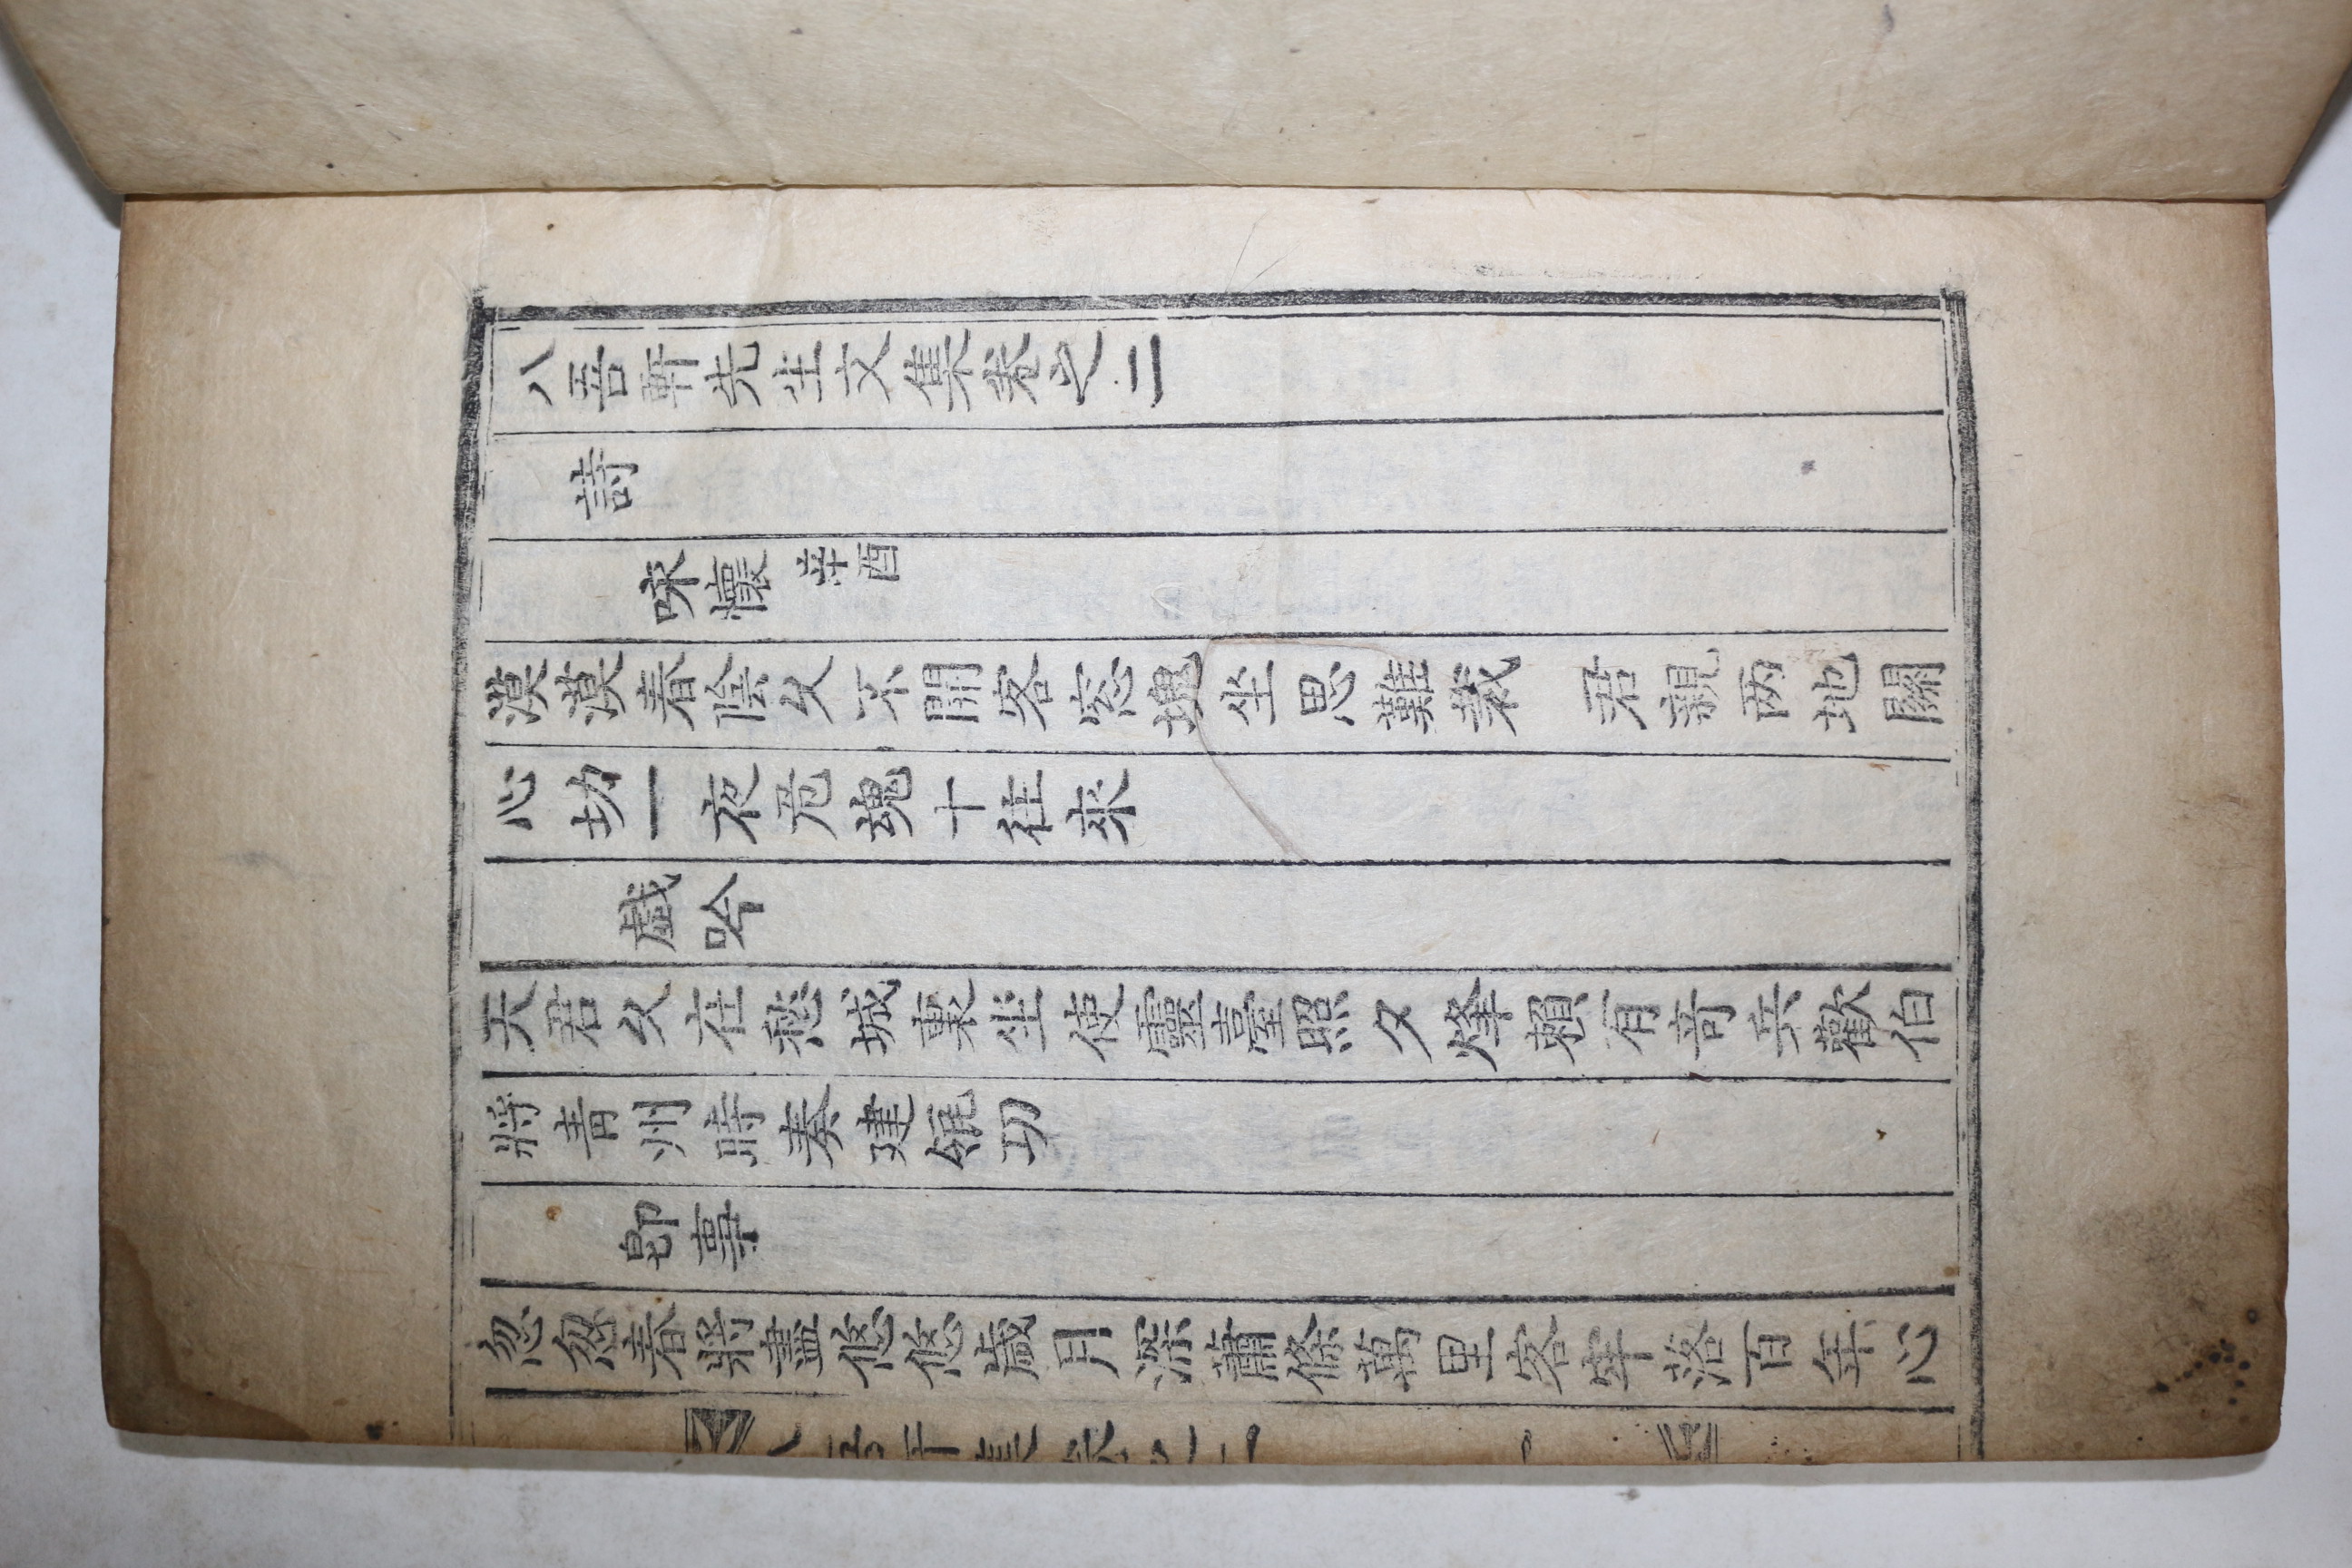 八吾軒先生文集卷之二
詩
咏懷 辛酉
漠漠春陰久不開客窓塊坐思難裁 君親两地關
心切一夜危魂十往來
戱吟
天君久在愁城裏坐使靈臺照夕烽賴有奇兵歡伯
將青州時奏建瓴功
卽事
忽忽春將盡悠悠歲月深蕭條萬里客牢落百年心
八吾軒集卷之二